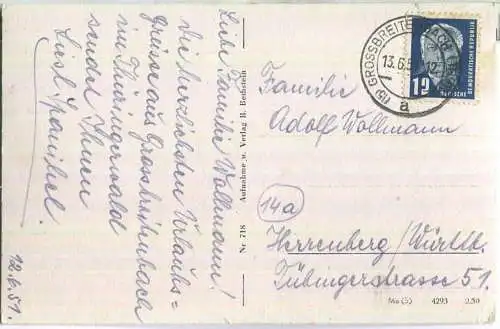 Liebe Familie Wollmann!
Die herzlichsten Urlaubs-
grüsse aus Grossbreitenbach
im Thüringerwald
sendet Ihnen
Liesl Spanihel.
12.6.51.
Nr. 718 Aufnahme u. Verlag R. Bechstein
GROSSBREITENBACH
(15)
13.6.5
a
12
DEUTSCHE DEMOKRATISCHE REPUBLIK
Familie
Adolf Wollmann
14a
Herrenberg/Württb.
Tübingerstrasse 51.
Mo (5) 4293 2.50